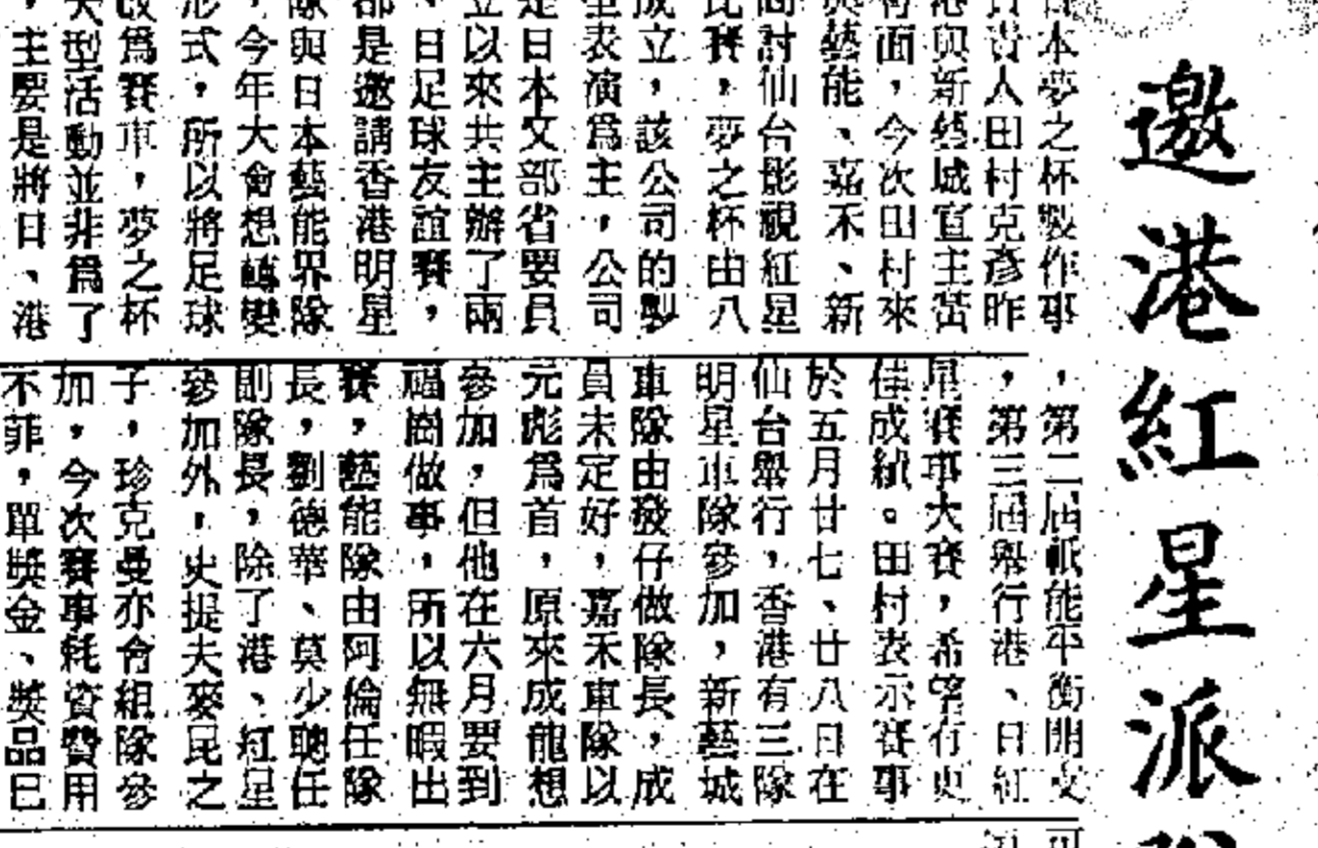 邀港紅星派
日本夢之杯製作事
貴人田村克彥昨
港與新藝城宣主苗
面,今次田村來
與藝能、嘉禾、新
商討仙台影視紅星
比賽,夢之杯由八
成立,該公司的製
表演為主,公司
是日本文部省要員
立以來共主辦了兩
、日足球友誼賽,
都是邀請香港明星
隊與日本藝能界隊
,今年大會想轉變
形式,所以將足球
改為賽車,夢之杯
大型活動並非為了
,主要是將日、港
,第二屆祇能平衡開支
,第三屆舉行港、日紅
星賽車大賽,希望有更
佳成績。田村表示賽事
於五月廿七、廿八日在
仙台舉行,香港有三隊
明星車隊參加,新藝城
車隊由發仔做隊長,成
員未定好,嘉禾車隊以
元彪為首,原來成龍想
參加,但他在六月要到
福岡做事,所以無暇出
賽,藝能隊由阿倫任隊
長,劉德華、莫少聰任
副隊長,除了港、紅星
參加外,史提夫麥昆之
子,珍克曼亦會組隊參
加,今次賽事耗資費用
不菲,單獎金、獎品已